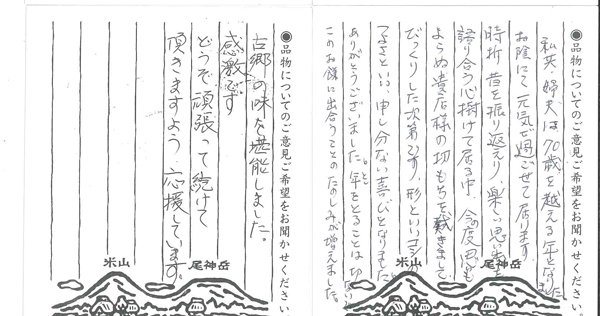 ●品物についてのご意見ご希望をお聞かせください。
私共、婦夫は70歳を越える年となりました
お陰にて元気で過ごせて居ります
時折昔を振り返えり、楽しい思い出を
語り合う心掛けて居る中、今の度思も
よらぬ貴店様の切もちを戴きまして
びっくりした次第です、形といいコシの
つよさといい、申し分ない喜びとなりました
ありがとうございました。年をとることは切ない
このお餅に出合うことのたのしみが増えました。
米山
尾神岳
●品物についてのご意見ご希望をお聞かせください。
古郷の味を堪能しました。
感激です
どうぞ頑張って続けて
頂きますよう、応援しています。
米山
尾神岳